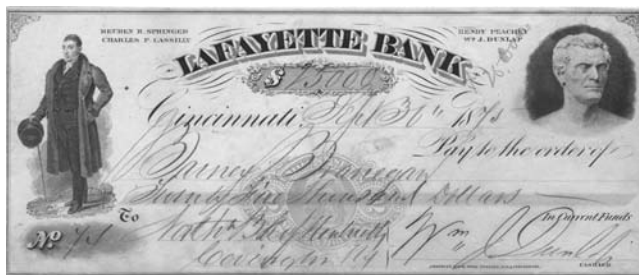 REUBEN R. SPRINGER
CHARLES P. CASSILLY
HENRY PEACHEY
WM J. DUNLAP
LAFAYETTE BANK
$ 25000
Cincinnati, Sept 30th 1873
Pay to the order of
Barney Branegan
Twenty five Thousand Dollars
To North
In Current Funds
No
Covington Ky
Wm J Dunlap
CASHIER